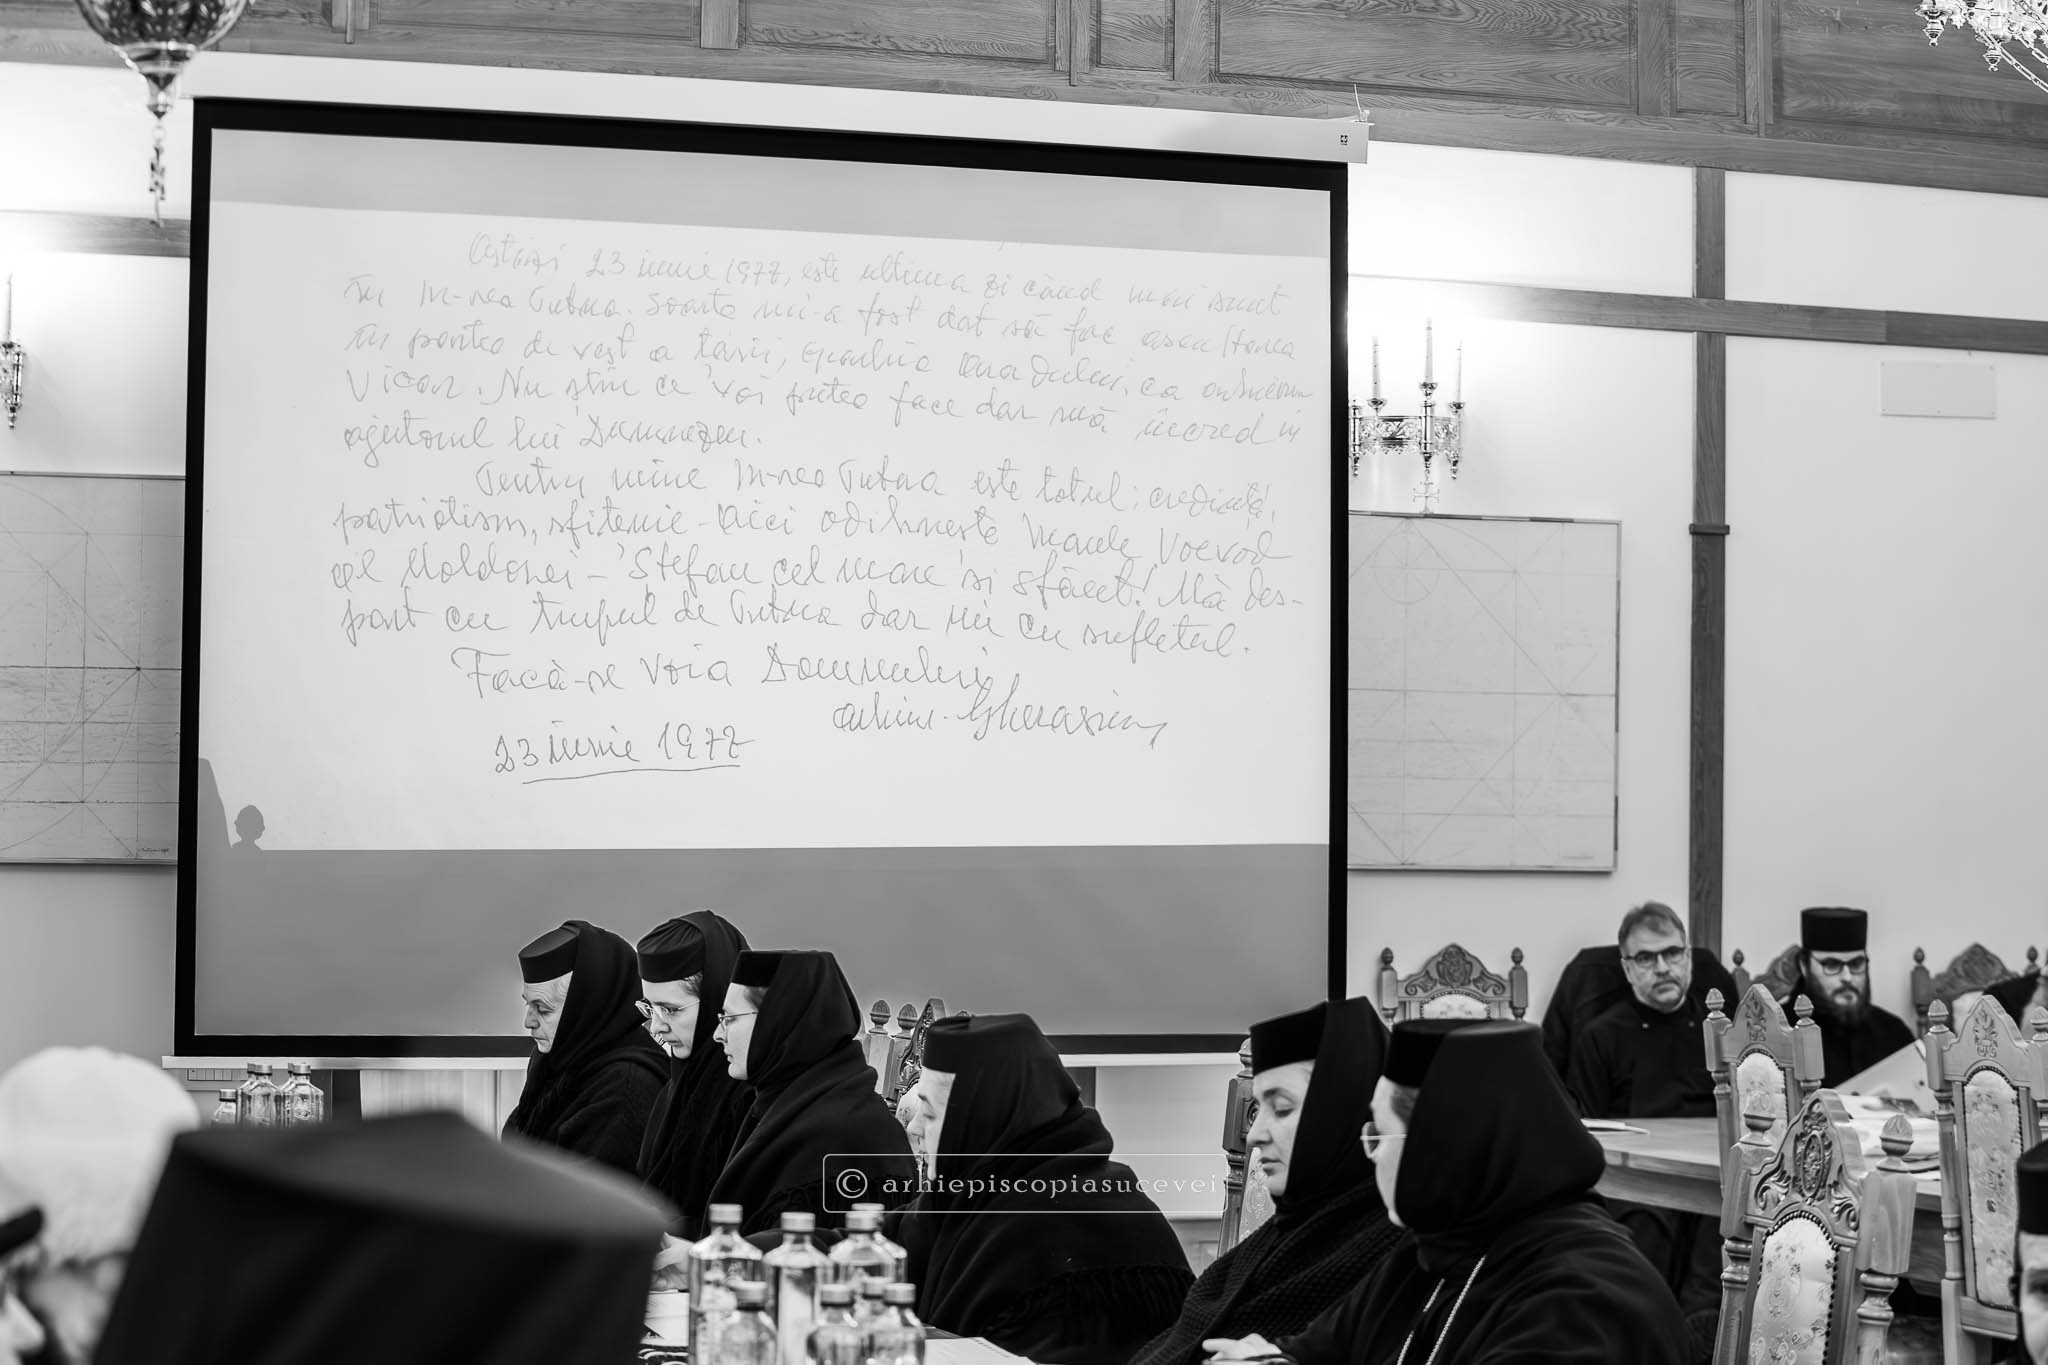 Astăzi 23 iunie 1977, este ultima zi când mai sunt
în M-rea Putna. Soarta mi-a fost dat să fac ascultarea
în partea de vest a țării, Oradului, ca arhiereu
Vicar. Nu știu ce voi putea face dar mă încred în
ajutorul lui Dumnezeu.
Pentru mine M-rea Putna este totul; credință,
patriotism, sfințenie - aici odihnește Marele Voevod
al Moldovei - Ștefan cel Mare și sfânt! Mă des-
part cu trupul de Putna dar nu cu sufletul.
Facă-se voia Domnului
arhim. Gherasim
23 iunie 1977
© arhiepiscopiasucevei